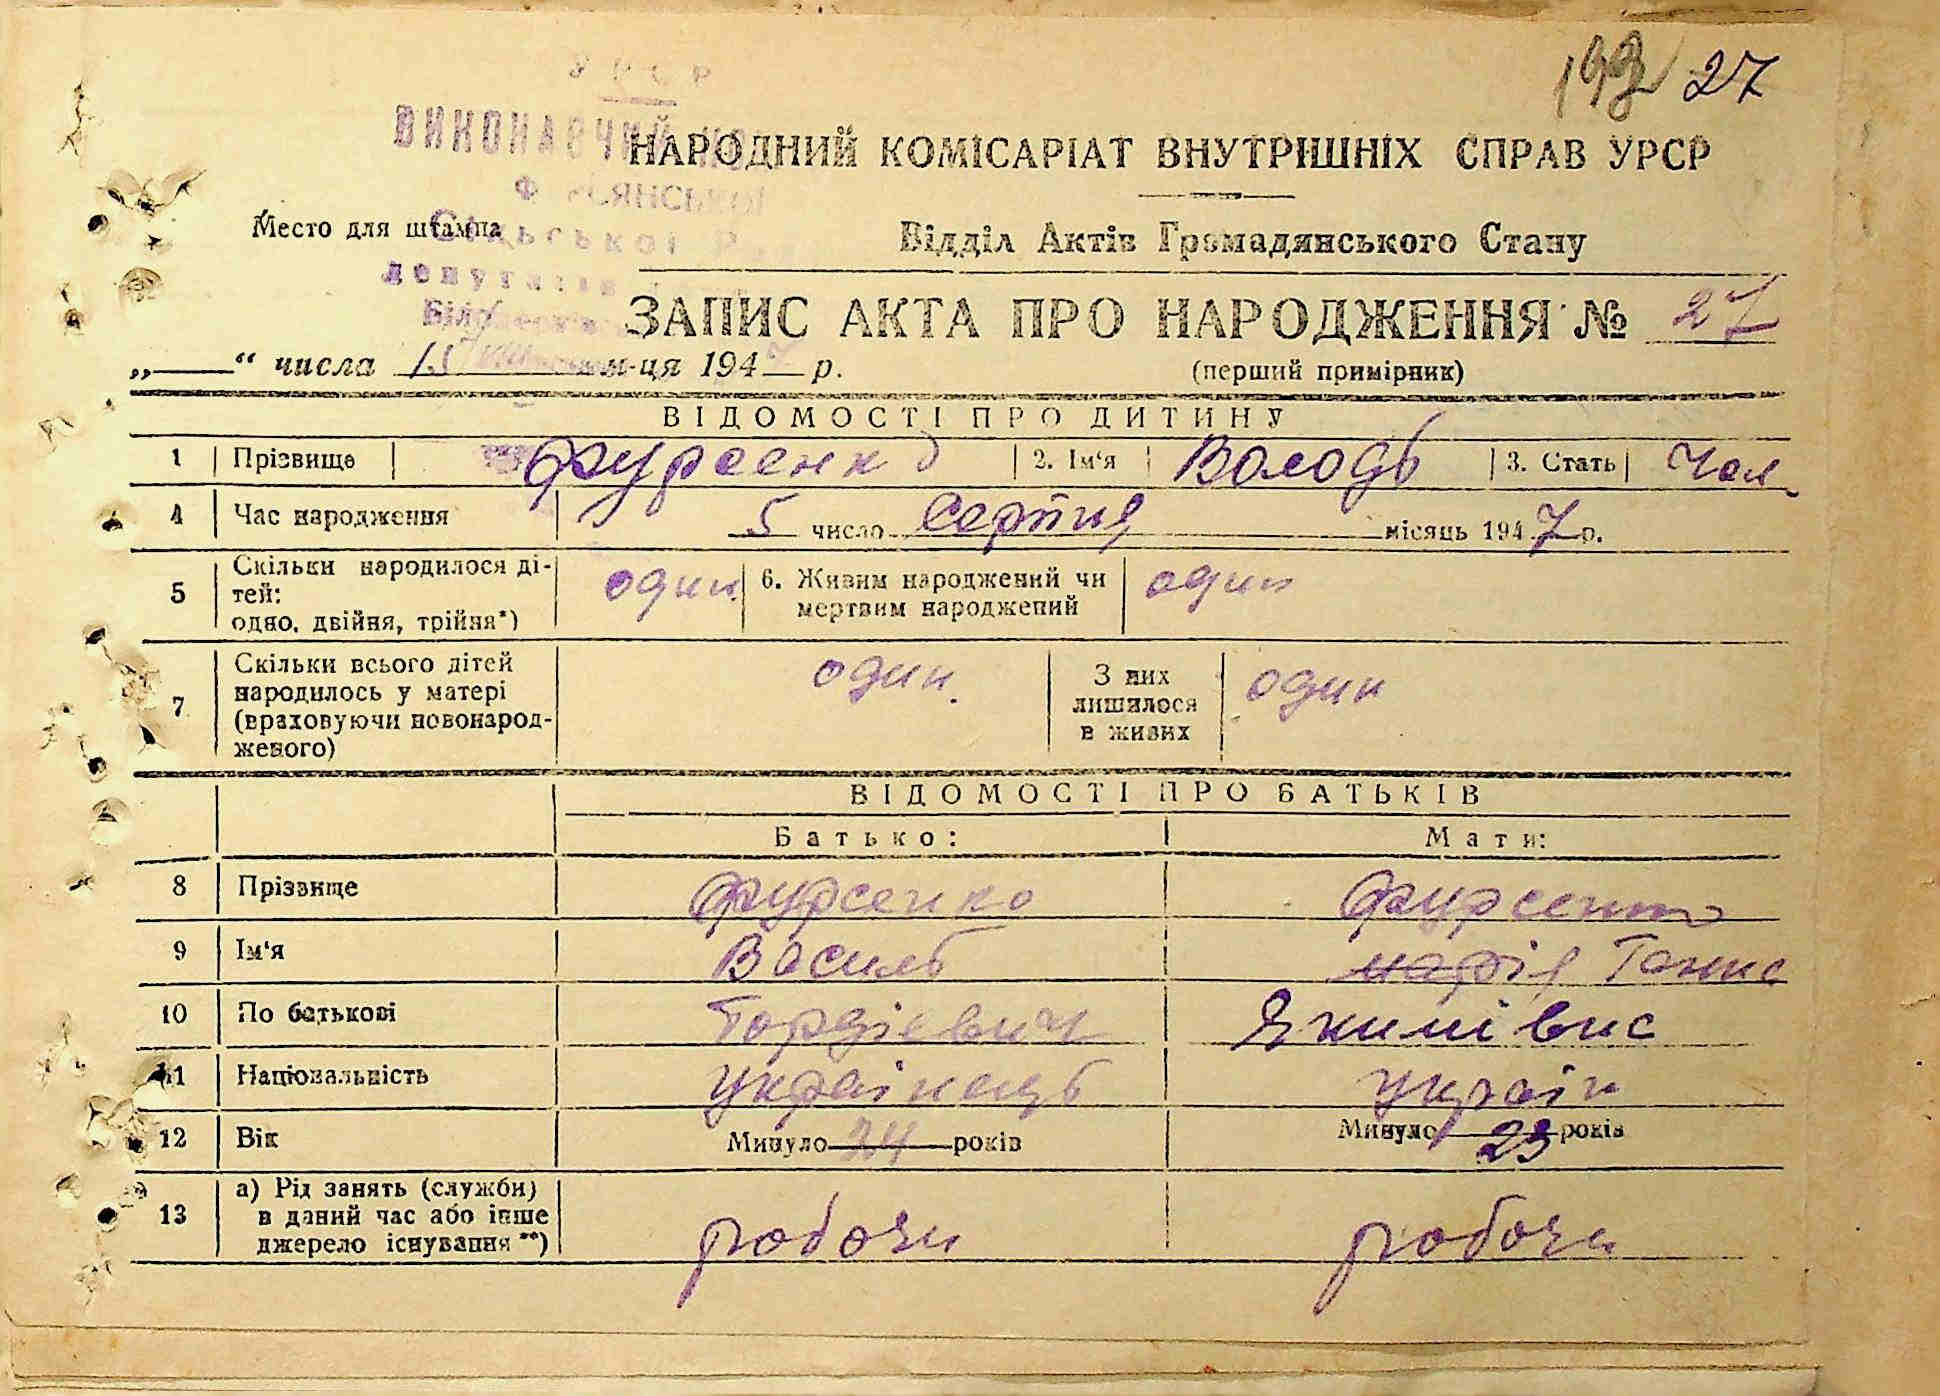 УРСР
27
ВИКОНАВЧИЙ
НАРОДНИЙ КОМІСАРІАТ ВНУТРІШНІХ СПРАВ УРСР
Место для штампа
Сільської
Відділ Актів Громадянського Стану
депутатів
ЗАПИС АКТА ПРО НАРОДЖЕННЯ № 27
„ “ числа 15 м-ця 1947 р.
(перший примірник)
ВІДОМОСТІ ПРО ДИТИНУ
1 Прізвище Фурсенко 2. Ім‘я Володь 3. Стать Чол.
4 Час народження 5 число Серпня місяць 1947 р.
5 Скільки народилося ді-
тей:
одно, двійня, трійня*) один 6. Живим народжений чи
мертвим народжений один
7 Скільки всього дітей
народилось у матері
(враховуючи новонарод-
женого) один. З них
лишилося
в живих один
ВІДОМОСТІ ПРО БАТЬКІВ
Батько: Мати:
8 Прізвище Фурсенко Фурсенко
9 Ім‘я Василь Марія Ганна
10 По батькові Гордієвич Якимівна
11 Національність Українець Україн
12 Вік Минуло 24 років Минуло 23 років
13 а) Рід занять (служби)
в даний час або інше
джерело існування **) робочи робочи